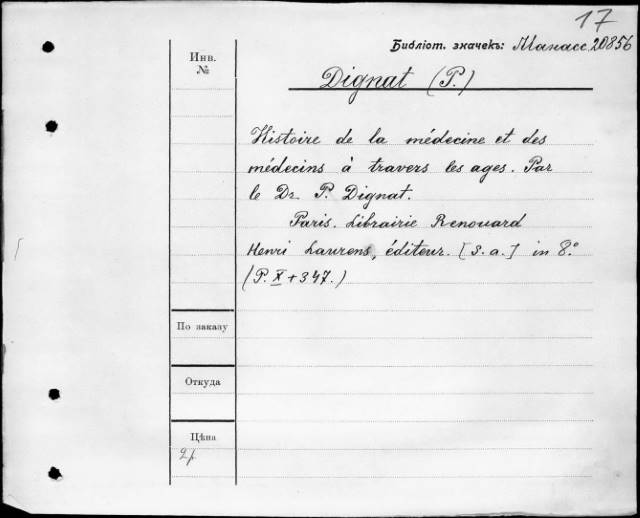 17
Библіот. значекъ: Манасс. 20856
Инв.
№
Dignat (P.)
Histoire de la médecine et des
médecins à travers les ages. Par
le Dr. P. Dignat.
Paris. Librairie Renouard
Henri Laurens, éditeur. [s.a.] in 8.º
(P. X + 347.)
По заказу
Откуда
Цѣна
2 р.